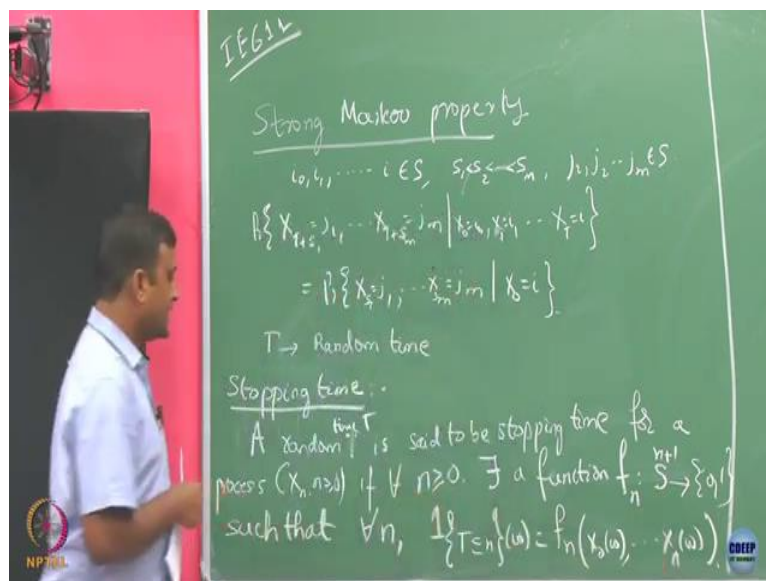 IE611
Strong Markov property
i₀, i₁, ..... i ∈ S, s₁<s₂<--<sₘ, j₁, j₂ -- jₘ ∈ S
P{X_{T+s₁}=j₁, ... X_{T+sₘ}=jₘ | X₀=i₀, X₁=i₁ ... X_T=i}
= P{X_{s₁}=j₁, ... X_{sₘ}=jₘ | X₀=i}
T → Random time
Stopping time :-
A random time T is said to be stopping time for a
process (Xₙ, n≥0) if ∀ n≥0. ∃ a function fₙ: Sⁿ⁺¹ → {0,1}
such that ∀n, 1{T≤n}(ω) = fₙ(X₀(ω), ... Xₙ(ω))
NPTEL
CDEEP
IIT BOMBAY